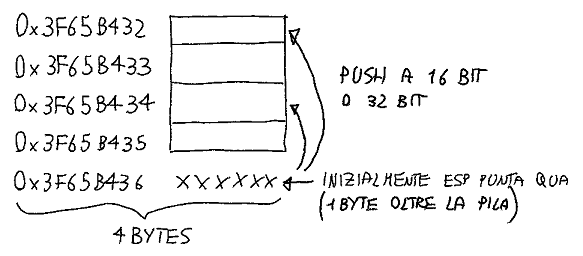 0x3F65B432
0x3F65B433
0x3F65B434
0x3F65B435
0x3F65B436 XXXXXX
PUSH A 16 BIT
O 32 BIT
INIZIALMENTE ESP PUNTA QUA
(1 BYTE OLTRE LA PILA)
4 BYTES